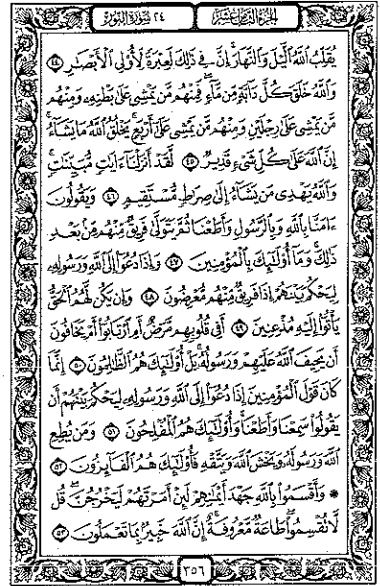 الجزء الثامن عشر
٢٤ سورة النور
يُقَلِّبُ ٱللَّهُ ٱلَّيْلَ وَٱلنَّهَارَۚ إِنَّ فِى ذَٰلِكَ لَعِبْرَةً لِّأُو۟لِى ٱلْأَبْصَٰرِ ٤٤
وَٱللَّهُ خَلَقَ كُلَّ دَآبَّةٍ مِّن مَّآءٍۖ فَمِنْهُم مَّن يَمْشِى عَلَىٰ بَطْنِهِۦ وَمِنْهُم
مَّن يَمْشِى عَلَىٰ رِجْلَيْنِ وَمِنْهُم مَّن يَمْشِى عَلَىٰٓ أَرْبَعٍۚ يَخْلُقُ ٱللَّهُ مَا يَشَآءُۚ
إِنَّ ٱللَّهَ عَلَىٰ كُلِّ شَىْءٍ قَدِيرٌ ٤٥ لَّقَدْ أَنزَلْنَآ ءَايَٰتٍ مُّبَيِّنَٰتٍۚ
وَٱللَّهُ يَهْدِى مَن يَشَآءُ إِلَىٰ صِرَٰطٍ مُّسْتَقِيمٍ ٤٦ وَيَقُولُونَ
ءَامَنَّا بِٱللَّهِ وَبِٱلرَّسُولِ وَأَطَعْنَا ثُمَّ يَتَوَلَّىٰ فَرِيقٌ مِّنْهُم مِّنۢ بَعْدِ
ذَٰلِكَۚ وَمَآ أُو۟لَٰٓئِكَ بِٱلْمُؤْمِنِينَ ٤٧ وَإِذَا دُعُوٓا۟ إِلَى ٱللَّهِ وَرَسُولِهِۦ
لِيَحْكُمَ بَيْنَهُمْ إِذَا فَرِيقٌ مِّنْهُم مُّعْرِضُونَ ٤٨ وَإِن يَكُن لَّهُمُ ٱلْحَقُّ
يَأْتُوٓا۟ إِلَيْهِ مُذْعِنِينَ ٤٩ أَفِى قُلُوبِهِم مَّرَضٌ أَمِ ٱرْتَابُوٓا۟ أَمْ يَخَافُونَ
أَن يَحِيفَ ٱللَّهُ عَلَيْهِمْ وَرَسُولُهُۥۚ بَلْ أُو۟لَٰٓئِكَ هُمُ ٱلظَّٰلِمُونَ ٥٠ إِنَّمَا
كَانَ قَوْلَ ٱلْمُؤْمِنِينَ إِذَا دُعُوٓا۟ إِلَى ٱللَّهِ وَرَسُولِهِۦ لِيَحْكُمَ بَيْنَهُمْ أَن
يَقُولُوا۟ سَمِعْنَا وَأَطَعْنَاۚ وَأُو۟لَٰٓئِكَ هُمُ ٱلْمُفْلِحُونَ ٥١ وَمَن يُطِعِ
ٱللَّهَ وَرَسُولَهُۥ وَيَخْشَ ٱللَّهَ وَيَتَّقْهِ فَأُو۟لَٰٓئِكَ هُمُ ٱلْفَآئِزُونَ ٥٢
* وَأَقْسَمُوا۟ بِٱللَّهِ جَهْدَ أَيْمَٰنِهِمْ لَئِنْ أَمَرْتَهُمْ لَيَخْرُجُنَّۖ قُل
لَّا تُقْسِمُوا۟ۖ طَاعَةٌ مَّعْرُوفَةٌۚ إِنَّ ٱللَّهَ خَبِيرٌۢ بِمَا تَعْمَلُونَ ٥٣
٣٥٦